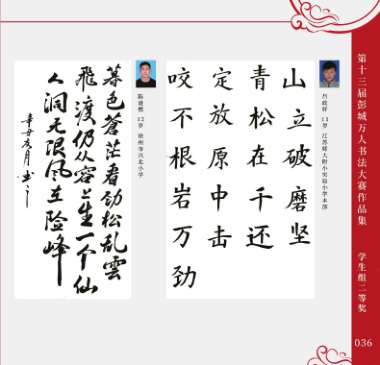 第十三届彭城万人书法大赛作品集
学生组二等奖
036
11岁 江苏师大附小实验小学本部
山立破磨坚
青松在千还
定放原中击
咬不根岩万劲
12岁 徐州市
暮色蒼茫看劲松乱雲
飛渡仍从容天生一个仙
人洞无限风光在险峰
辛丑夏月